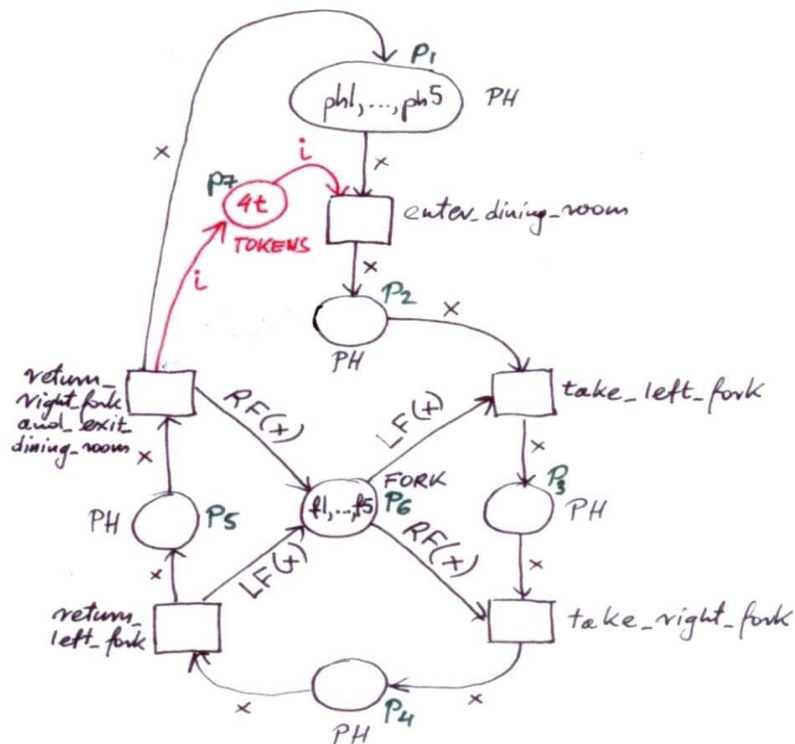 x
P1
ph1,...,ph5
PH
x
i
P7
4t
TOKENS
i
enter_dining_room
x
P2
PH
x
return_
right_fork
and_exit
dining_room
x
RF(x)
LF(x)
take_left_fork
x
FORK
P6
f1,...,f5
P3
PH
x
PH
P5
x
LF(x)
RF(x)
return_
left_fork
take_right_fork
x
P4
PH
x